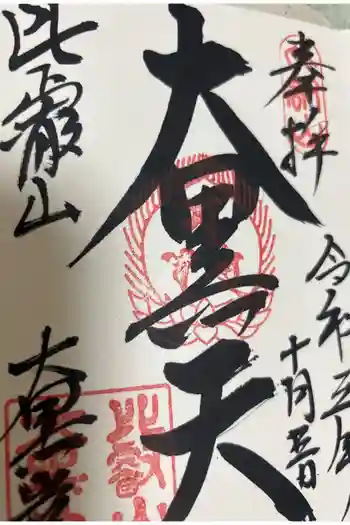 奉拝
令和五年
十月
大黒天
比叡山
大黒堂
比叡山